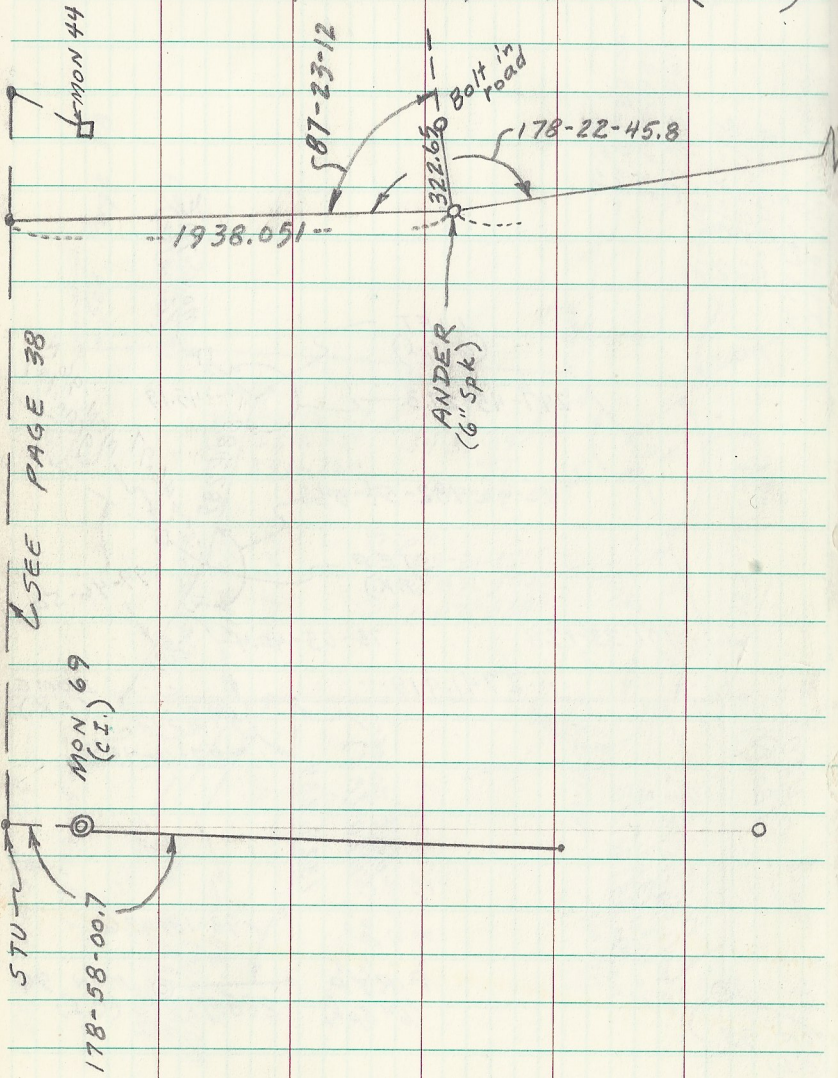 MON 44
87-23-12
Bolt in
road
178-22-45.8
322.65
1938.051
ANDER
(6" Spk)
SEE PAGE 38
MON 69
(C.I.)
STU
178-58-00.7